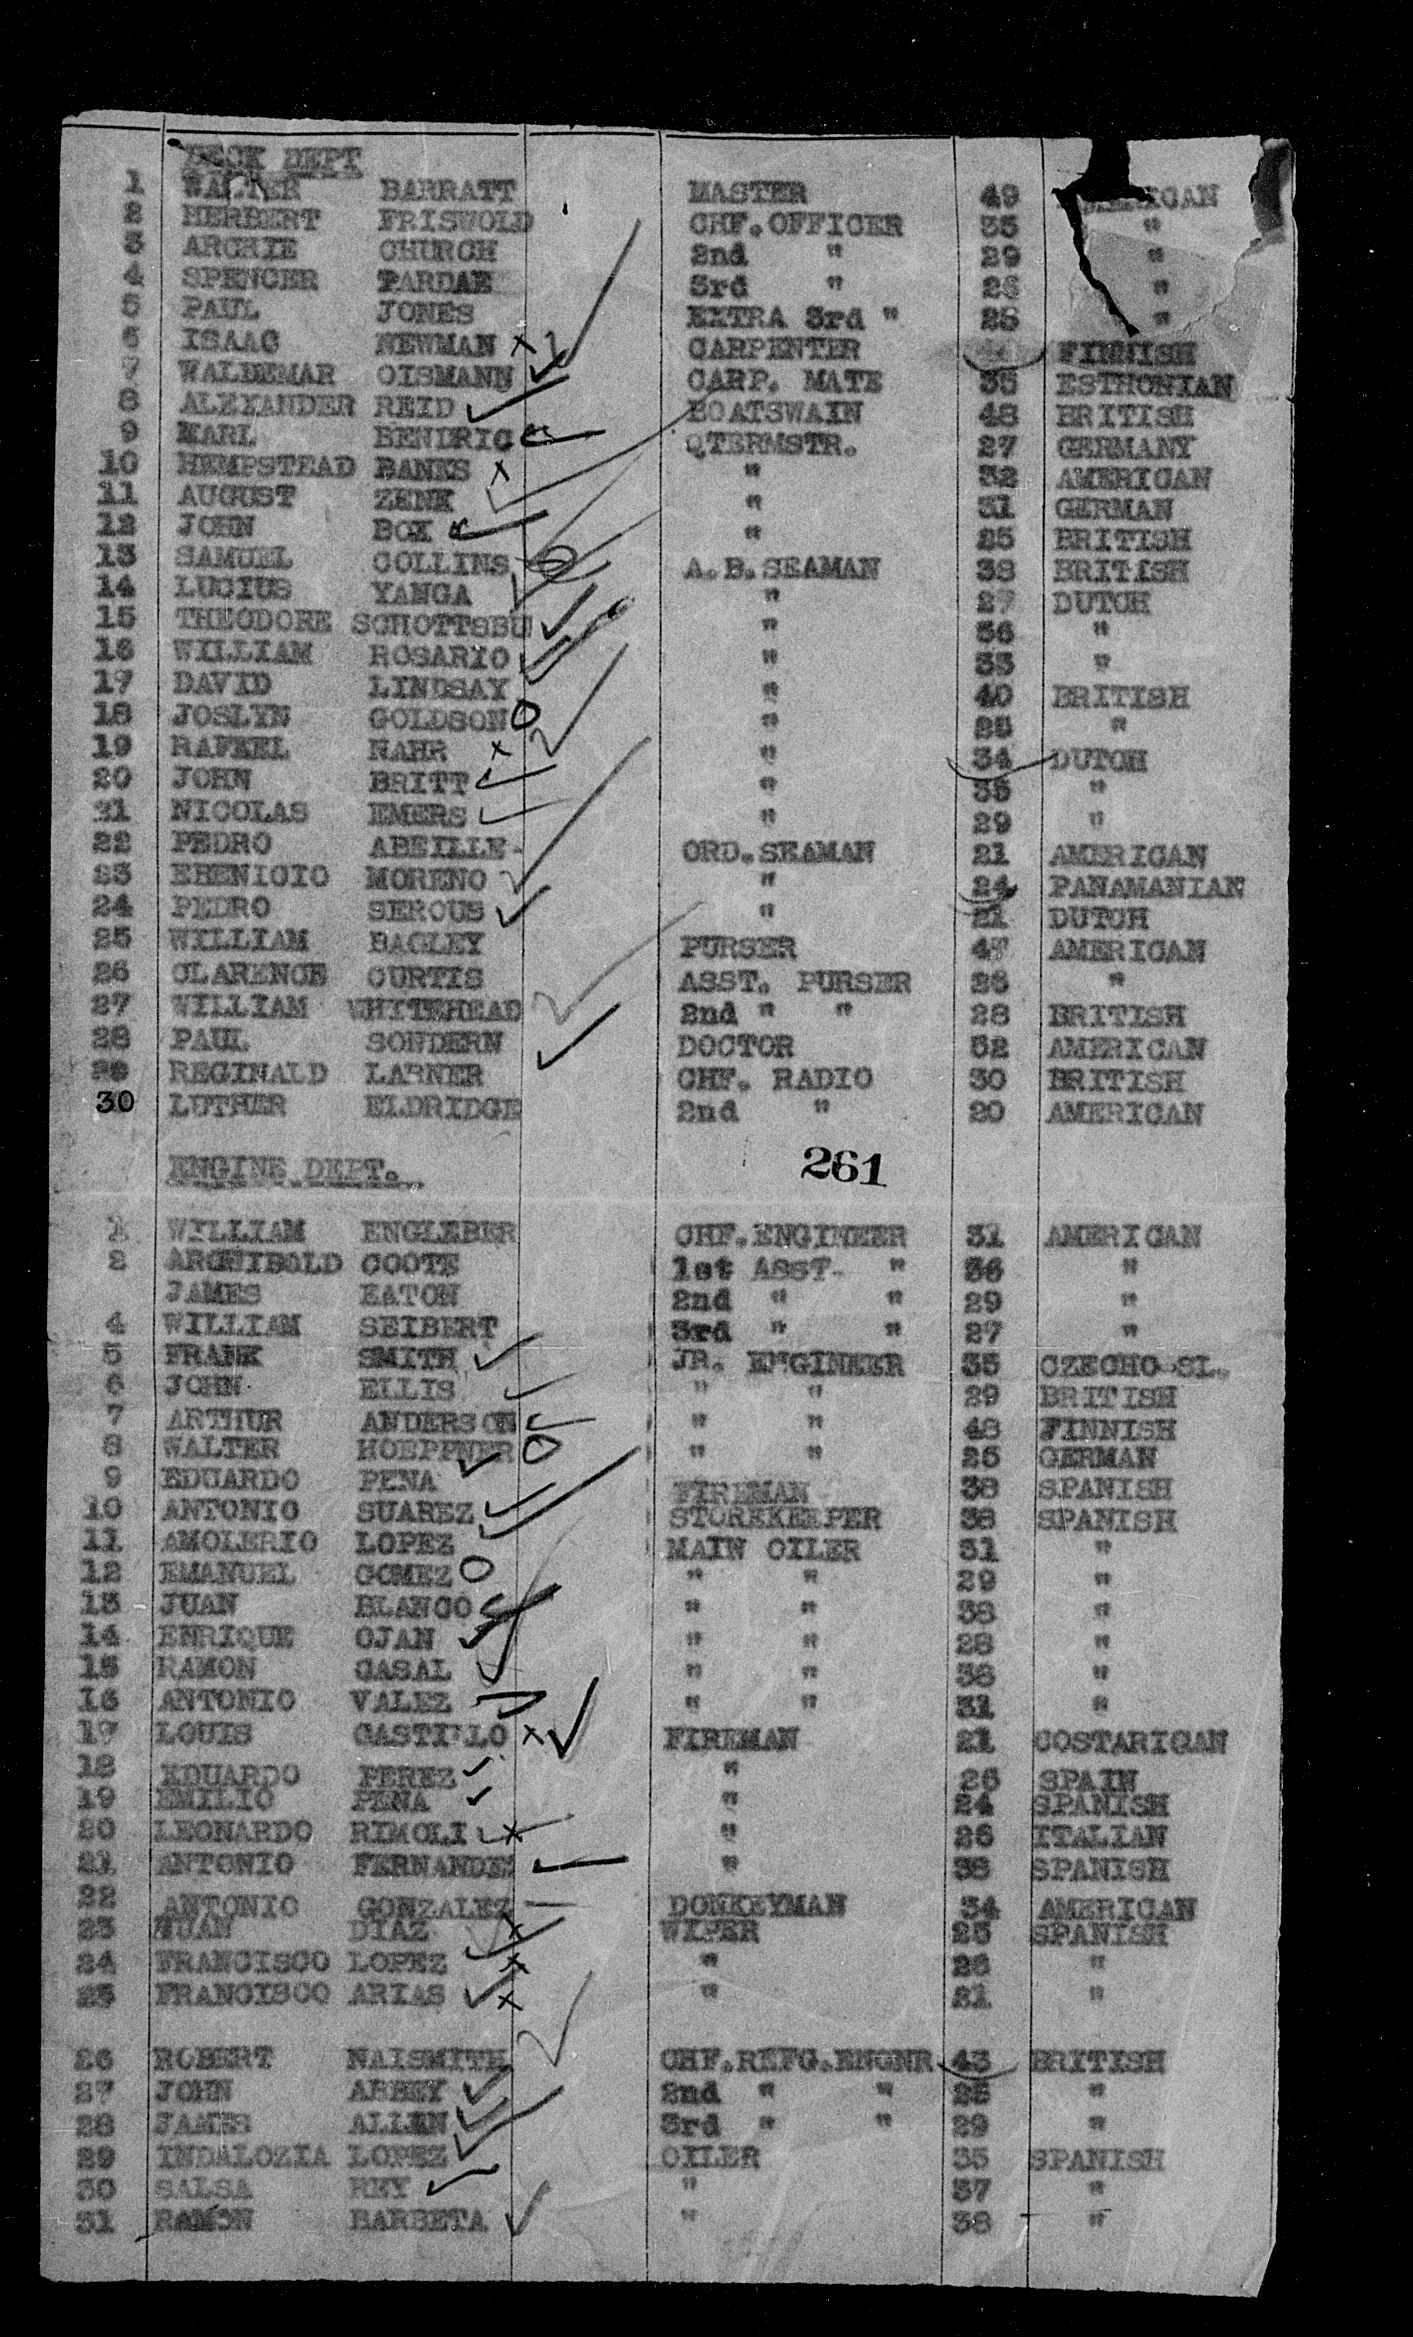 DECK DEPT
1 WALTER BARRATT MASTER 49 AMERICAN
2 HERBERT FRISWOLD CHF. OFFICER 35 "
3 ARCHIE CHURCH 2nd " 29 "
4 SPENCER PARDAE 3rd " 26 "
5 PAUL JONES EXTRA 3rd " 25 "
6 ISAAC NEWMAN CARPENTER 44 FINNISH
7 WALDEMAR OISMANN CARP. MATE 35 ESTHONIAN
8 ALEXANDER REID BOATSWAIN 48 BRITISH
9 MARL BENDRIC QTERMSTR. 27 GERMANY
10 HEMPSTEAD BANKS " 32 AMERICAN
11 AUGUST ZENK " 31 GERMAN
12 JOHN BOX " 25 BRITISH
13 SAMUEL COLLINS A.B.SEAMAN 38 BRITISH
14 LUCIUS YANGA " 27 DUTCH
15 THEODORE SCHOTTSBU " 36 "
16 WILLIAM ROSARIO " 33 "
17 DAVID LINDSAY " 40 BRITISH
18 JOSLYN GOLDSON " 25 "
19 RAFEEL NAHR " 34 DUTCH
20 JOHN BRITT " 35 "
21 NICOLAS EMERS " 29 "
22 PEDRO ABEILLE- ORD.SEAMAN 21 AMERICAN
23 EHENICIO MORENO " 24 PANAMANIAN
24 PEDRO SEROUS " 21 DUTCH
25 WILLIAM BAGLEY PURSER 47 AMERICAN
26 CLARENCE CURTIS ASST. PURSER 26 "
27 WILLIAM WHITEHEAD 2nd " " 28 BRITISH
28 PAUL SONDERN DOCTOR 32 AMERICAN
29 REGINALD LARNER CHF. RADIO 30 BRITISH
30 LUTHER ELDRIDGE 2nd " 20 AMERICAN
261
ENGINE DEPT.
1 WILLIAM ENGLEBER CHF.ENGINEER 31 AMERICAN
2 ARCHIBOLD COOTE 1st ASST- " 36 "
JAMES EATON 2nd " " 29 "
4 WILLIAM SEIBERT 3rd " " 27 "
5 FRANK SMITH JR. ENGINEER 35 CZECHO-SL.
6 JOHN ELLIS " " 29 BRITISH
7 ARTHUR ANDERSON " " 48 FINNISH
8 WALTER HOEPPNER " " 25 GERMAN
9 EDUARDO PENA FIREMAN 38 SPANISH
10 ANTONIO SUAREZ STOREKEEPER 38 SPANISH
11 AMOLERIO LOPEZ MAIN OILER 31 "
12 EMANUEL GOMEZ " " 29 "
13 JUAN BLANCO " " 38 "
14 ENRIQUE OJAN " " 28 "
15 RAMON CASAL " " 38 "
16 ANTONIO VALEZ " " 31 "
17 LOUIS CASTILLO FIREMAN 21 COSTARICAN
18 EDUARDO PEREZ " 26 SPAIN
19 EMILIO PENA " 24 SPANISH
20 LEONARDO RIMOLI " 26 ITALIAN
21 ANTONIO FERNANDEZ " 38 SPANISH
22 ANTONIO GONZALEZ DONKEYMAN 34 AMERICAN
23 JUAN DIAZ WIPER 25 SPANISH
24 FRANCISCO LOPEZ " 26 "
25 FRANCISCO ARIAS " 21 "
26 ROBERT NAISMITH CHF.REFG.ENGNR 43 BRITISH
27 JOHN ABBEY 2nd " " 25 "
28 JAMES ALLEN 3rd " " 29 "
29 INDALOZIA LOPEZ OILER 35 SPANISH
30 SALSA REY " 37 "
31 RAMON BARBETA " 38 "